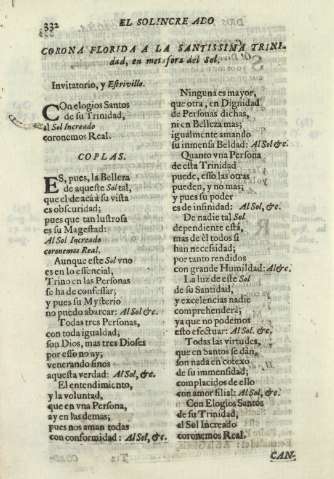 332
EL SOL INCREADO
CORONA FLORIDA A LA SANTISSIMA TRINI-
dad, en metafora del Sol.
Invitatorio, y Estrivillo.
COn elogios Santos
de su Trinidad,
al Sol Increado
coronemos Real.
COPLAS.
ES, pues, la Belleza
de aqueste Sol tal,
que el de acá à su vista
es obscuridad;
pues que tan lustrosa
es su Magestad:
Al Sol Increado
coronemos Real.
Aunque este Sol vno
es en lo essencial,
Trino en las Personas
se ha de confessar;
y pues su Mysterio
no puedo abarcar: Al Sol &c.
Todas tres Personas,
con toda igualdad,
son Dios, mas tres Dioses
por esso no ay;
venerando finos
aquesta verdad: Al Sol, &c.
El entendimiento,
y la voluntad,
que en vna Persona,
ay en las demas;
pues nos aman todas
con conformidad: Al Sol, &c.
Ninguna es mayor,
que otra, en Dignidad
de Personas dichas,
ni en Belleza mas;
igualmente amando
su inmensa Beldad: Al Sol &c.
Quanto vna Persona
de esta Trinidad
puede, esso las otras
pueden, y no mas;
y pues su poder
es de infinidad: Al Sol, &c.
De nadie tal Sol
dependiente está,
mas de èl todos si
han necessidad;
por tanto rendidos
con grande Humildad: Al &c.
La luz de este Sol
de su Santidad,
y excelencias nadie
comprehenderà;
ya que no podemos
esto efectuar: Al Sol, &c.
Todas las virtudes,
que en Santos se dàn,
son nada en cotexo
de su immensidad;
complacidos de ello
con amor filial: Al Sol, &c.
Con Elogios Santos
de su Trinidad,
al Sol Increado
coronemos Real.
CAN-